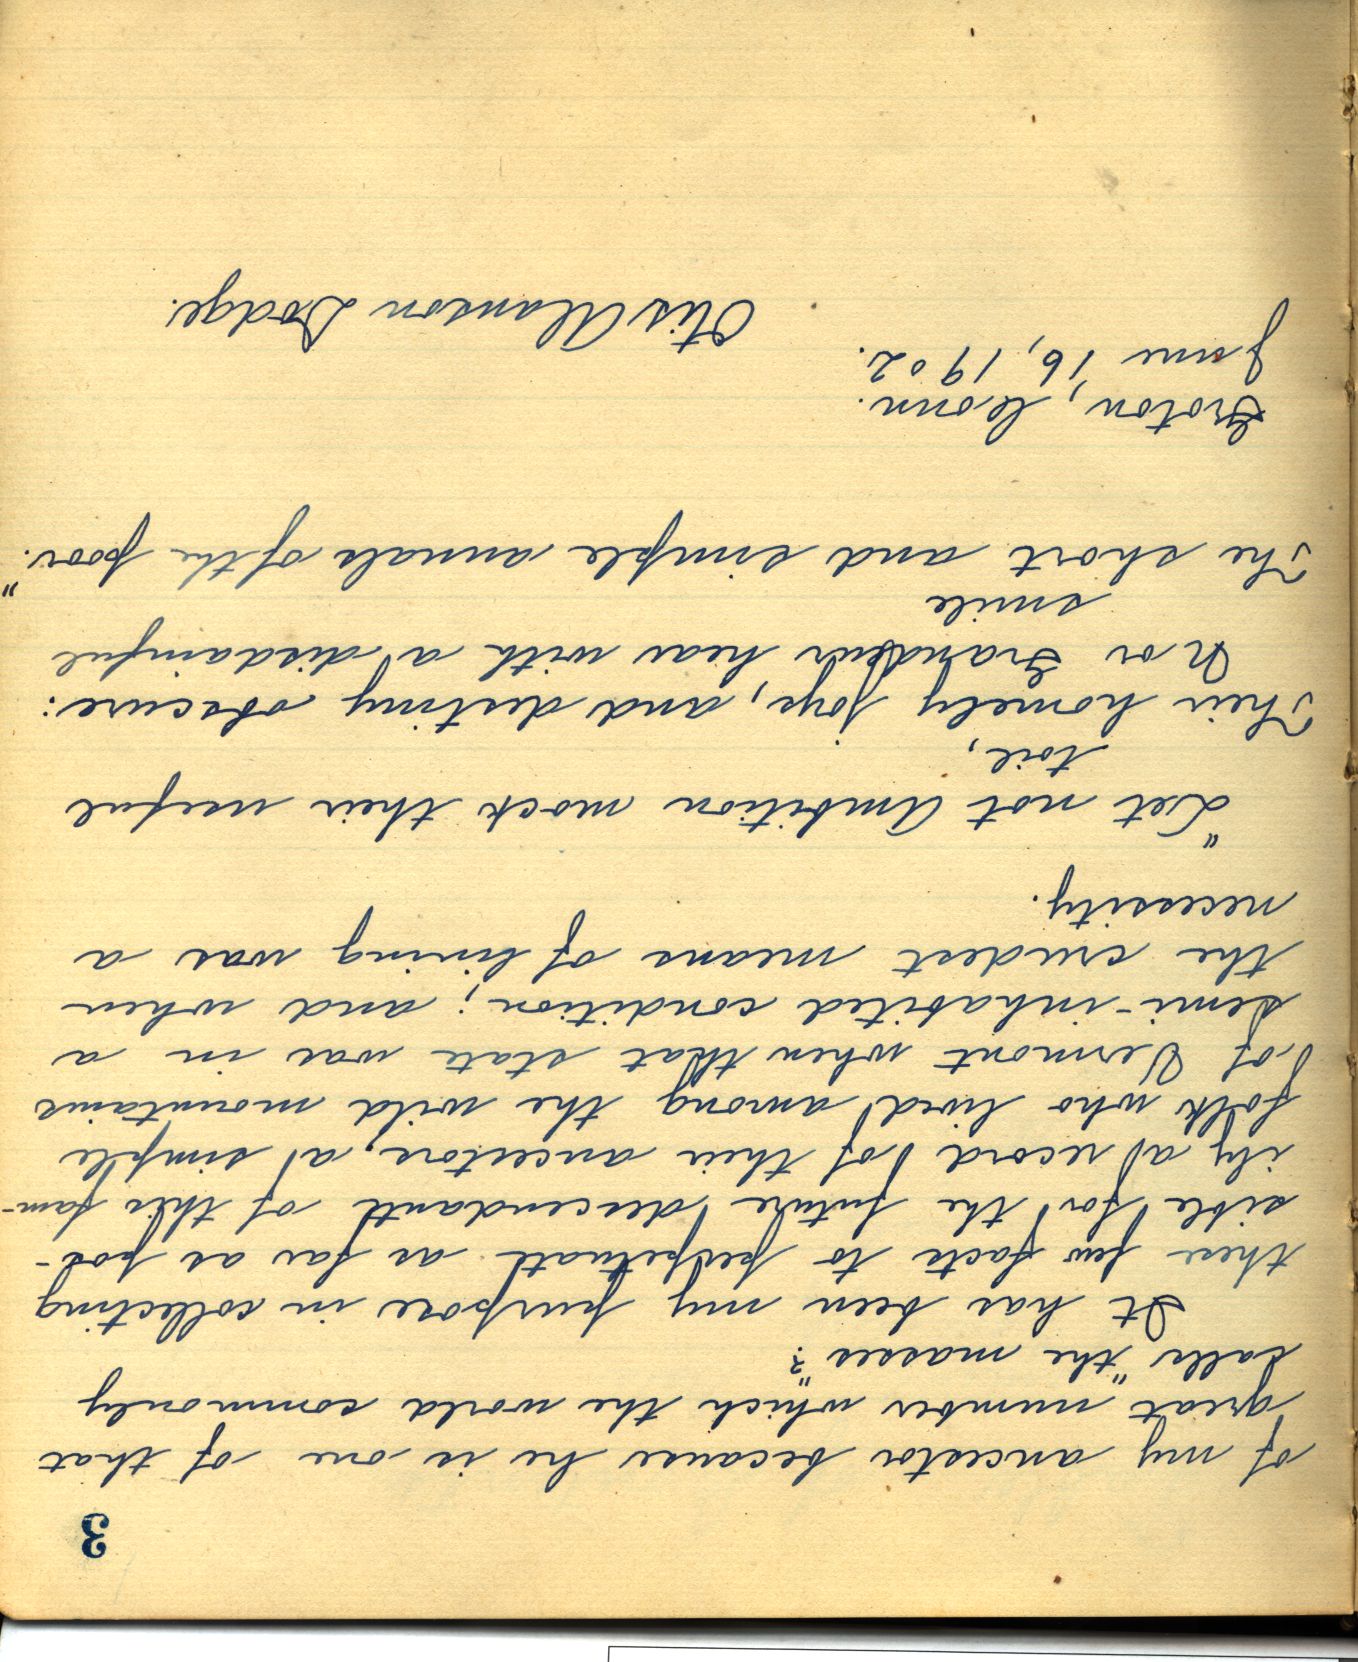 3
of my ancestor because he is one of that
great number which the world commonly
calls "the masses"?
It has been my purpose in collecting
these few facts to perpetuate as far as pos-
sible for the future descendants of this fam-
ily a record of their ancestors, a simple
folk who lived among the wild mountains
of Vermont when that state was in a
semi-inhabited condition; and when
the crudest means of living was a
necessity.
"Let not Ambition mock their useful
toil,
Their homely joys, and destiny obscure:
Nor Grandeur hear with a disdainful
smile
The short and simple annals of the poor."
Groton, Conn.
June 16, 1902.
Otis Alanson Dodge.